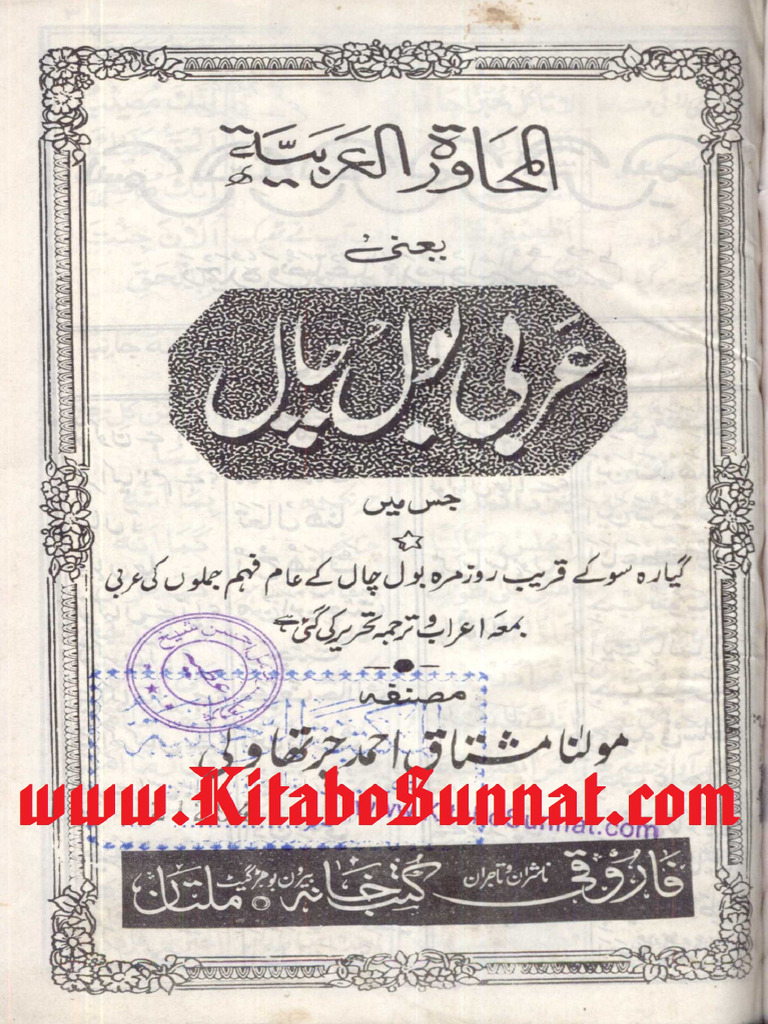 المحاورة العربية
یعنی
عَربی بول چال
جس میں
گیارہ سو کے قریب روز مرہ بول چال کے عام فہم جملوں کی عربی
بمعہ اعراب و ترجمہ تحریر کی گئی ہے
مصنفہ
مولانا مشتاق احمد چرتھاولی
www.KitaboSunnat.com
www.KitaboSunnat.com
فاروقی کتب خانہ ناشران و تاجران بیرون بوہڑ گیٹ ملتان